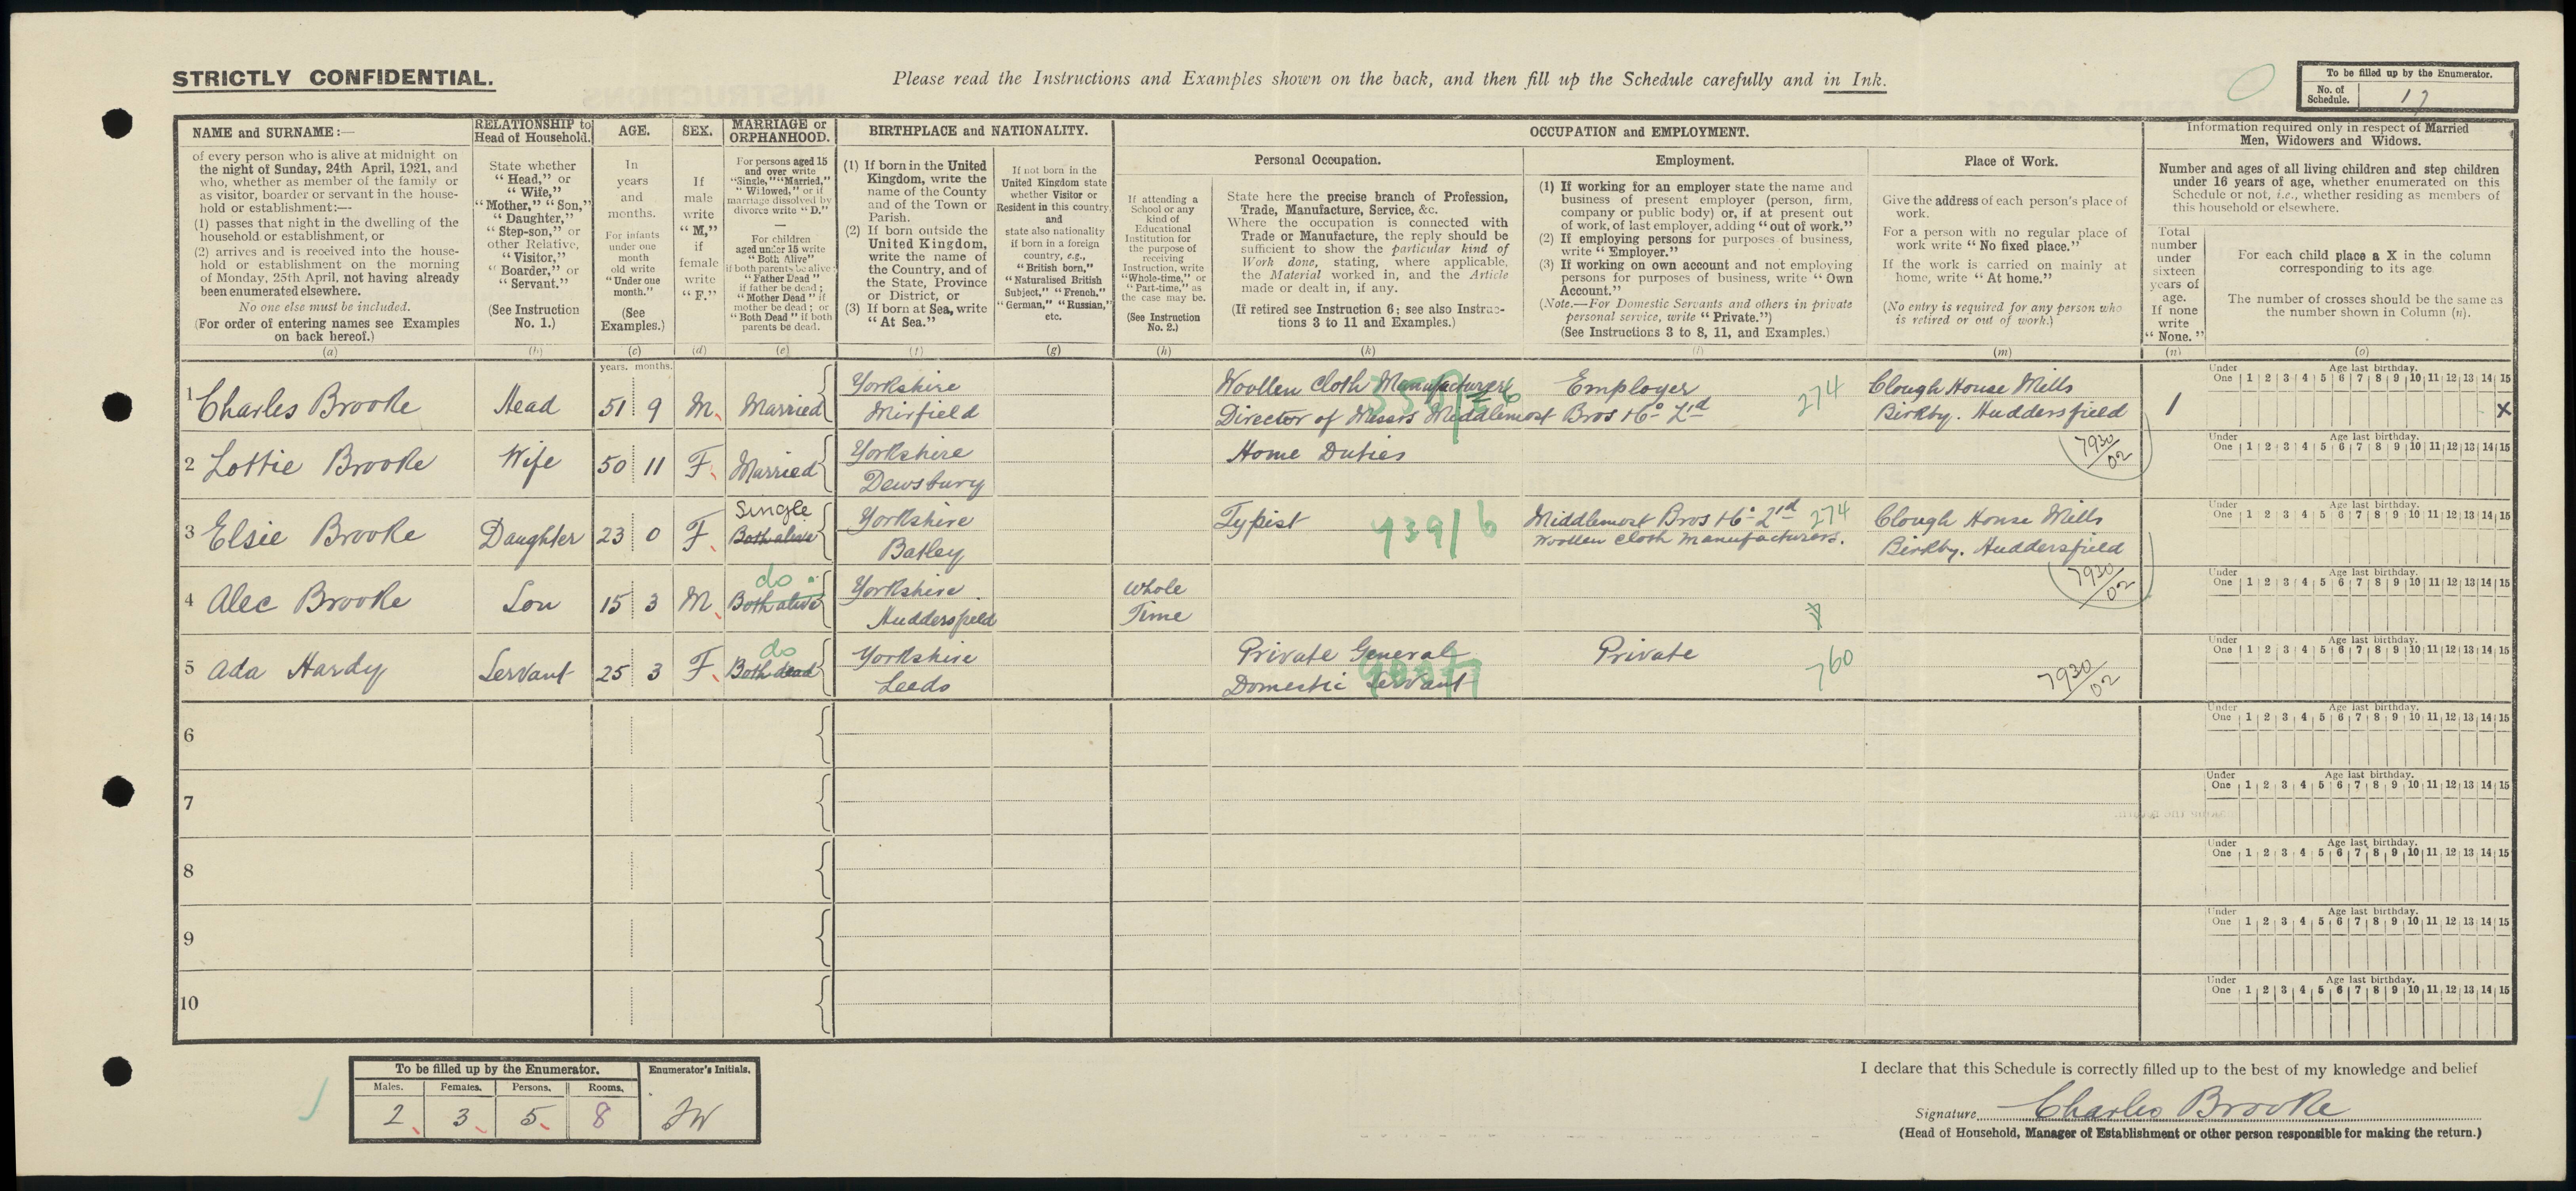 STRICTLY CONFIDENTIAL.
Please read the Instructions and Examples shown on the back, and then fill up the Schedule carefully and in Ink.
To be filled up by the Enumerator.
No. of Schedule. 17
NAME and SURNAME:—
of every person who is alive at midnight on
the night of Sunday, 24th April, 1921, and
who, whether as member of the family or
as visitor, boarder or servant in the house-
hold or establishment:—
(1) passes that night in the dwelling of the
household or establishment, or
(2) arrives and is received into the house-
hold or establishment on the morning
of Monday, 25th April, not having already
been enumerated elsewhere.
No one else must be included.
(For order of entering names see Examples
on back hereof.)
(a)
RELATIONSHIP to
Head of Household.
State whether
"Head," or
"Wife,"
"Mother," "Son,"
"Daughter,"
"Step-son," or
other Relative,
"Visitor,"
"Boarder," or
"Servant."
(See Instruction
No. 1.)
(b)
AGE.
In
years
and
months.
For infants
under one
month
old write
"Under one
month."
(See
Examples.)
(c)
SEX.
If
male
write
"M,"
if
female
write
"F."
(d)
MARRIAGE or
ORPHANHOOD.
For persons aged 15
and over write
"Single," "Married,"
"Widowed," or if
marriage dissolved by
divorce write "D."
—
For children
aged under 15 write
"Both Alive"
if both parents be alive;
"Father Dead"
if father be dead;
"Mother Dead" if
mother be dead; or
"Both Dead" if both
parents be dead.
(e)
BIRTHPLACE and NATIONALITY.
(1) If born in the United
Kingdom, write the
name of the County
and of the Town or
Parish.
(2) If born outside the
United Kingdom,
write the name of
the Country, and of
the State, Province
or District, or
(3) If born at Sea, write
"At Sea."
(f)
If not born in the
United Kingdom state
whether Visitor or
Resident in this country,
and
state also nationality
if born in a foreign
country, e.g.,
"British born,"
"Naturalised British
Subject," "French,"
"German," "Russian,"
etc.
(g)
OCCUPATION and EMPLOYMENT.
If attending a
School or any
kind of
Educational
Institution for
the purpose of
receiving
Instruction, write
"Whole-time," or
"Part-time," as
the case may be.
(See Instruction
No. 2.)
(h)
Personal Occupation.
State here the precise branch of Profession,
Trade, Manufacture, Service, &c.
Where the occupation is connected with
Trade or Manufacture, the reply should be
sufficient to show the particular kind of
Work done, stating, where applicable,
the Material worked in, and the Article
made or dealt in, if any.
(If retired see Instruction 6; see also Instruc-
tions 3 to 11 and Examples.)
(k)
Employment.
(1) If working for an employer state the name and
business of present employer (person, firm,
company or public body) or, if at present out
of work, of last employer, adding "out of work."
(2) If employing persons for purposes of business,
write "Employer."
(3) If working on own account and not employing
persons for purposes of business, write "Own
Account."
(Note.—For Domestic Servants and others in private
personal service, write "Private.")
(See Instructions 3 to 8, 11, and Examples.)
(l)
Place of Work.
Give the address of each person's place of
work.
For a person with no regular place of
work write "No fixed place."
If the work is carried on mainly at
home, write "At home."
(No entry is required for any person who
is retired or out of work.)
(m)
Information required only in respect of Married
Men, Widowers and Widows.
Number and ages of all living children and step children
under 16 years of age, whether enumerated on this
Schedule or not, i.e., whether residing as members of
this household or elsewhere.
Total
number
under
sixteen
years of
age.
If none
write
"None."
(n)
For each child place a X in the column
corresponding to its age.
The number of crosses should be the same as
the number shown in Column (n).
(o)
years. months.
1 Charles Brooke Head 51 9 M. Married Yorkshire Mirfield
Woollen Cloth Manufacturer Employer 274 Clough House Mills
Director of Messrs Middlemost Bros & Co Ltd Birkby. Huddersfield 1
Under One 1 2 3 4 5 6 7 8 9 10 11 12 13 14 15 Age last birthday. X
7930/02
2 Lottie Brooke Wife 50 11 F. Married Yorkshire Dewsbury Home Duties
Under One 1 2 3 4 5 6 7 8 9 10 11 12 13 14 15 Age last birthday.
3 Elsie Brooke Daughter 23 0 F. Single Both alive Yorkshire Batley
Typist 939/6 Middlemost Bros & Co Ltd 274 Clough House Mills
Woollen Cloth Manufacturers. Birkby. Huddersfield
Under One 1 2 3 4 5 6 7 8 9 10 11 12 13 14 15 Age last birthday.
7930/02
4 Alec Brooke Son 15 3 M. do Both alive Yorkshire. Huddersfield Whole Time
Under One 1 2 3 4 5 6 7 8 9 10 11 12 13 14 15 Age last birthday.
5 Ada Hardy Servant 25 3 F. do Both dead Yorkshire Leeds
Private General Private 760 7930/02
Domestic Servant
Under One 1 2 3 4 5 6 7 8 9 10 11 12 13 14 15 Age last birthday.
6 Under One 1 2 3 4 5 6 7 8 9 10 11 12 13 14 15 Age last birthday.
7 Under One 1 2 3 4 5 6 7 8 9 10 11 12 13 14 15 Age last birthday.
8 Under One 1 2 3 4 5 6 7 8 9 10 11 12 13 14 15 Age last birthday.
9 Under One 1 2 3 4 5 6 7 8 9 10 11 12 13 14 15 Age last birthday.
10 Under One 1 2 3 4 5 6 7 8 9 10 11 12 13 14 15 Age last birthday.
To be filled up by the Enumerator. Enumerator's Initials.
Males. Females. Persons. Rooms.
2 3 5 8 JW
I declare that this Schedule is correctly filled up to the best of my knowledge and belief
Signature Charles Brooke
(Head of Household, Manager of Establishment or other person responsible for making the return.)